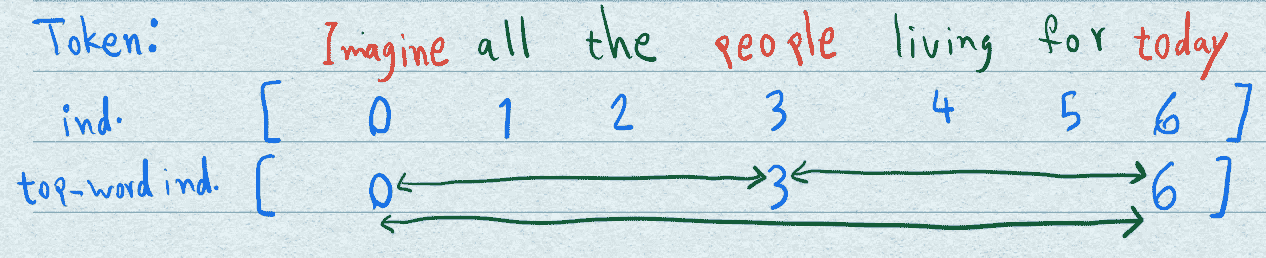 Token: Imagine all the people living for today
ind. [ 0 1 2 3 4 5 6 ]
top-word ind. [ 0 3 6 ]